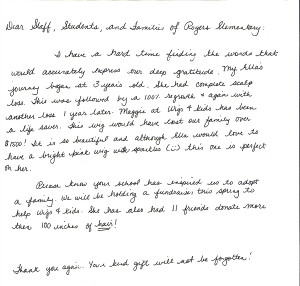 Dear Staff, Students, and Families of Rogers Elementary:
I have a hard time finding the words that
would accurately express our deep gratitude. My Ella's
journey began at 3 years old. She had complete scalp
loss. This was followed by a 100% regrowth & again with
another loss 1 year later. Maggie at Wigs 4 Kids has been
a life saver. This wig would have cost our family over
$1500! It is so beautiful and although Ella would love to
have a bright pink wig with sparkles (:) this one is perfect
on her.
Please know your school has inspired us to adopt
a family. We will be holding a fundraiser this spring to
help Wigs 4 Kids. She has also had 11 friends donate more
than 100 inches of hair!
Thank you again. Your kind gift will not be forgotten!